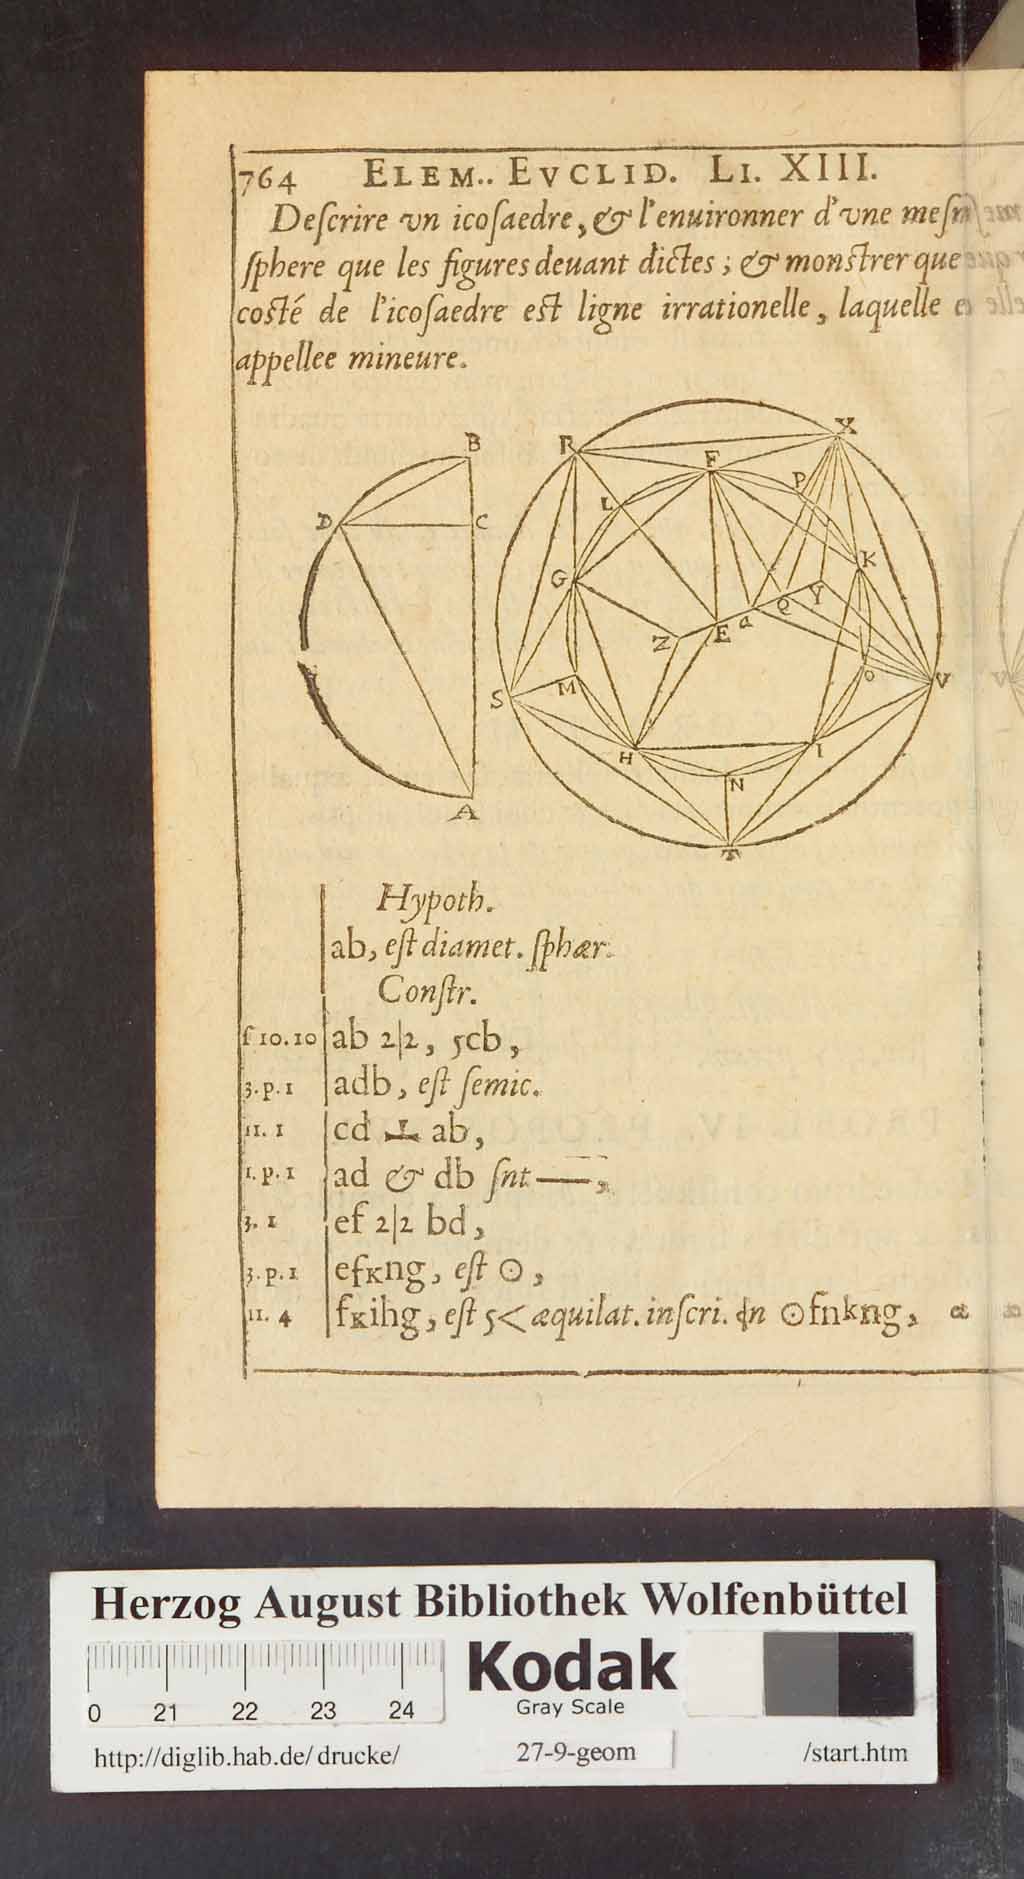 764 ELEM.. EVCLID. LI. XIII.
Deſcrire vn icoſaedre, & l'enuironner d'vne meſm
ſphere que les figures deuant dictes ; & monſtrer que
coſté de l'icoſaedre eſt ligne irrationelle, laquelle e
appellee mineure.
B
D C
A
R X
F
P
L
G K
Z E a Q Y
S M o V
H I
N
T
Hypoth.
ab, eſt diamet. ſphær.
Conſtr.
ſ 10.10 ab 2|2, 5cb,
3.p.1 adb, eſt ſemic.
11. 1 cd ⊥ ab,
1.p.1 ad & db ſnt —,
3. 1 ef 2|2 bd,
3.p.1 efκng, eſt ⊙,
11. 4 fκihg, eſt 5< æquilat. inſcri. ⊙fnkng,
Herzog August Bibliothek Wolfenbüttel
0 21 22 23 24
Kodak
Gray Scale
http://diglib.hab.de/drucke/ 27-9-geom /start.htm